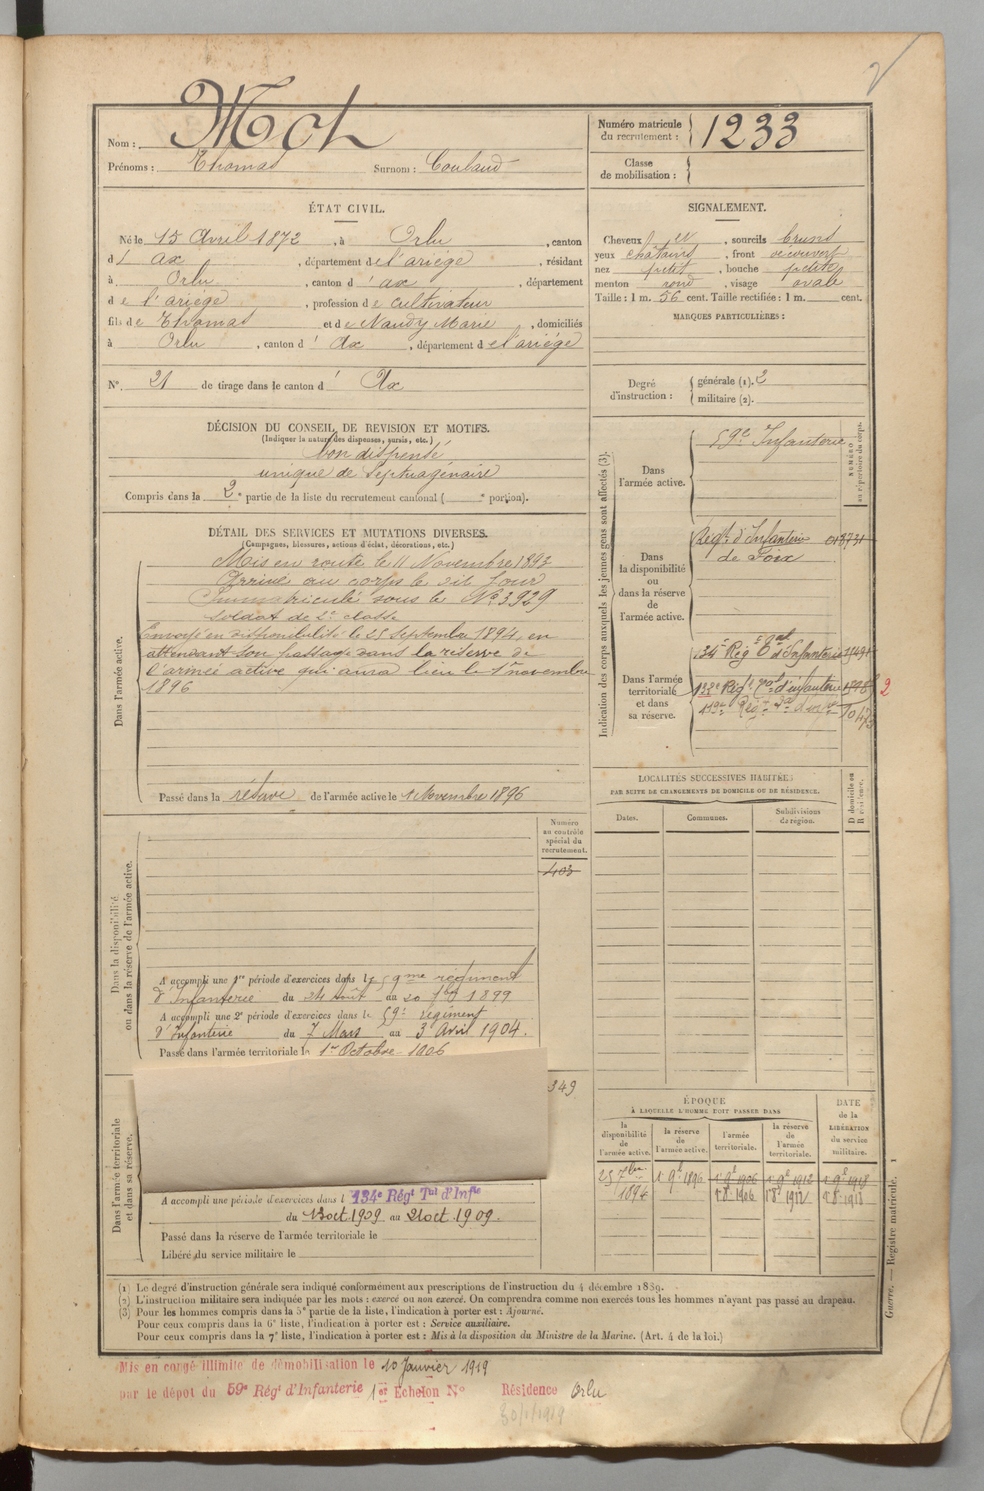 Nom : Moch
Prénoms : Thomas Surnom : Coubaud
Numéro matricule du recrutement : 1233
Classe de mobilisation :
ÉTAT CIVIL.
Né le 15 Avril 1872, à Orlu, canton
d' Ax, département de l'ariége, résidant
à Orlu, canton d' ax, département
de l'ariége, profession de cultivateur
fils de Thomas et de Naudy Marie, domiciliés
à Orlu, canton d' Ax, département de l'ariége
N° 21 de tirage dans le canton d' Ax
SIGNALEMENT.
Cheveux et, sourcils bruns
yeux chatains, front découvert
nez petit, bouche petite
menton rond, visage ovale
Taille : 1 m. 56 cent. Taille rectifiée : 1 m. cent.
MARQUES PARTICULIÈRES :
Degré d'instruction : générale (1). 2
militaire (2).
DÉCISION DU CONSEIL DE REVISION ET MOTIFS.
(Indiquer la nature des dispenses, sursis, etc.)
bon dispensé
unique de Septuagénaire
Compris dans la 2e partie de la liste du recrutement cantonal ( e portion).
DÉTAIL DES SERVICES ET MUTATIONS DIVERSES.
(Campagnes, blessures, actions d'éclat, décorations, etc.)
Dans l'armée active.
Mis en route le 11 Novembre 1893
Arrivé au corps le dit Jour
Immatriculé sous le No 3929
soldat de 2e classe
Envoyé en disponibilité le 25 Septembre 1894, en
attendant son passage dans la réserve de
l'armée active qui aura lieu le 1er novembre
1896
Passé dans la réserve de l'armée active le 1 Novembre 1896
Indication des corps auxquels les jeunes gens sont affectés (3).
NUMÉRO au répertoire du corps.
Dans l'armée active.
59e Infanterie
Dans la disponibilité ou dans la réserve de l'armée active.
Régt d'Infanterie
de Foix
Dans l'armée territoriale et dans sa réserve.
134e Rég T d'Infanterie
d'infanterie
2
LOCALITÉS SUCCESSIVES HABITÉES
PAR SUITE DE CHANGEMENTS DE DOMICILE OU DE RÉSIDENCE.
Dates. Communes. Subdivisions de région. D domicile ou R résidence.
Dans la disponibilité ou dans la réserve de l'armée active.
Numéro au contrôle spécial du recrutement.
403
A accompli une 1re période d'exercices dans le 59me régiment
d'Infanterie du 24 août au 20 7bre 1899
A accompli une 2e période d'exercices dans le 59e régiment
d'Infanterie du 7 Mars au 3 Avril 1904.
Passé dans l'armée territoriale le 1er Octobre 1906
349
Dans l'armée territoriale et dans sa réserve.
A accompli une période d'exercices dans l 134e Régt Tal d'Infie
du 13 oct 1909 au 21 oct 1909.
Passé dans la réserve de l'armée territoriale le
Libéré du service militaire le
ÉPOQUE
À LAQUELLE L'HOMME DOIT PASSER DANS
la disponibilité de l'armée active. la réserve de l'armée active. l'armée territoriale. la réserve de l'armée territoriale.
DATE de la LIBÉRATION du service militaire.
25 7bre 1894 1 9e 1896 1 9e 1906 1 9e 1912 1 9e 1918
1 8 1906 1 8 1912 1 8 1918
(1) Le degré d'instruction générale sera indiqué conformément aux prescriptions de l'instruction du 4 décembre 1889.
(2) L'instruction militaire sera indiquée par les mots : exercé ou non exercé. On comprendra comme non exercés tous les hommes n'ayant pas passé au drapeau.
(3) Pour les hommes compris dans la 5e partie de la liste, l'indication à porter est : Ajourné.
Pour ceux compris dans la 6e liste, l'indication à porter est : Service auxiliaire.
Pour ceux compris dans la 7e liste, l'indication à porter est : Mis à la disposition du Ministre de la Marine. (Art. 4 de la loi.)
Guerre. — Registre matricule. 1
Mis en congé illimité de démobilisation le 10 Janvier 1919
par le dépot du 59e Régt d'Infanterie 1er Echelon No Résidence Orlu
30/1/1919